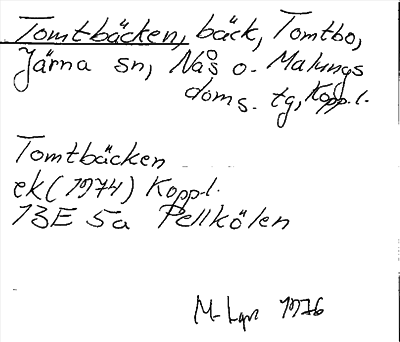 Tomtbäcken, bäck, Tomtbo,
Järna sn, Nås o. Malungs
doms. tg, Kopp.l.
Tomtbäcken
ek (1974) Kopp.l.
13E 5a Pellkölen
1976